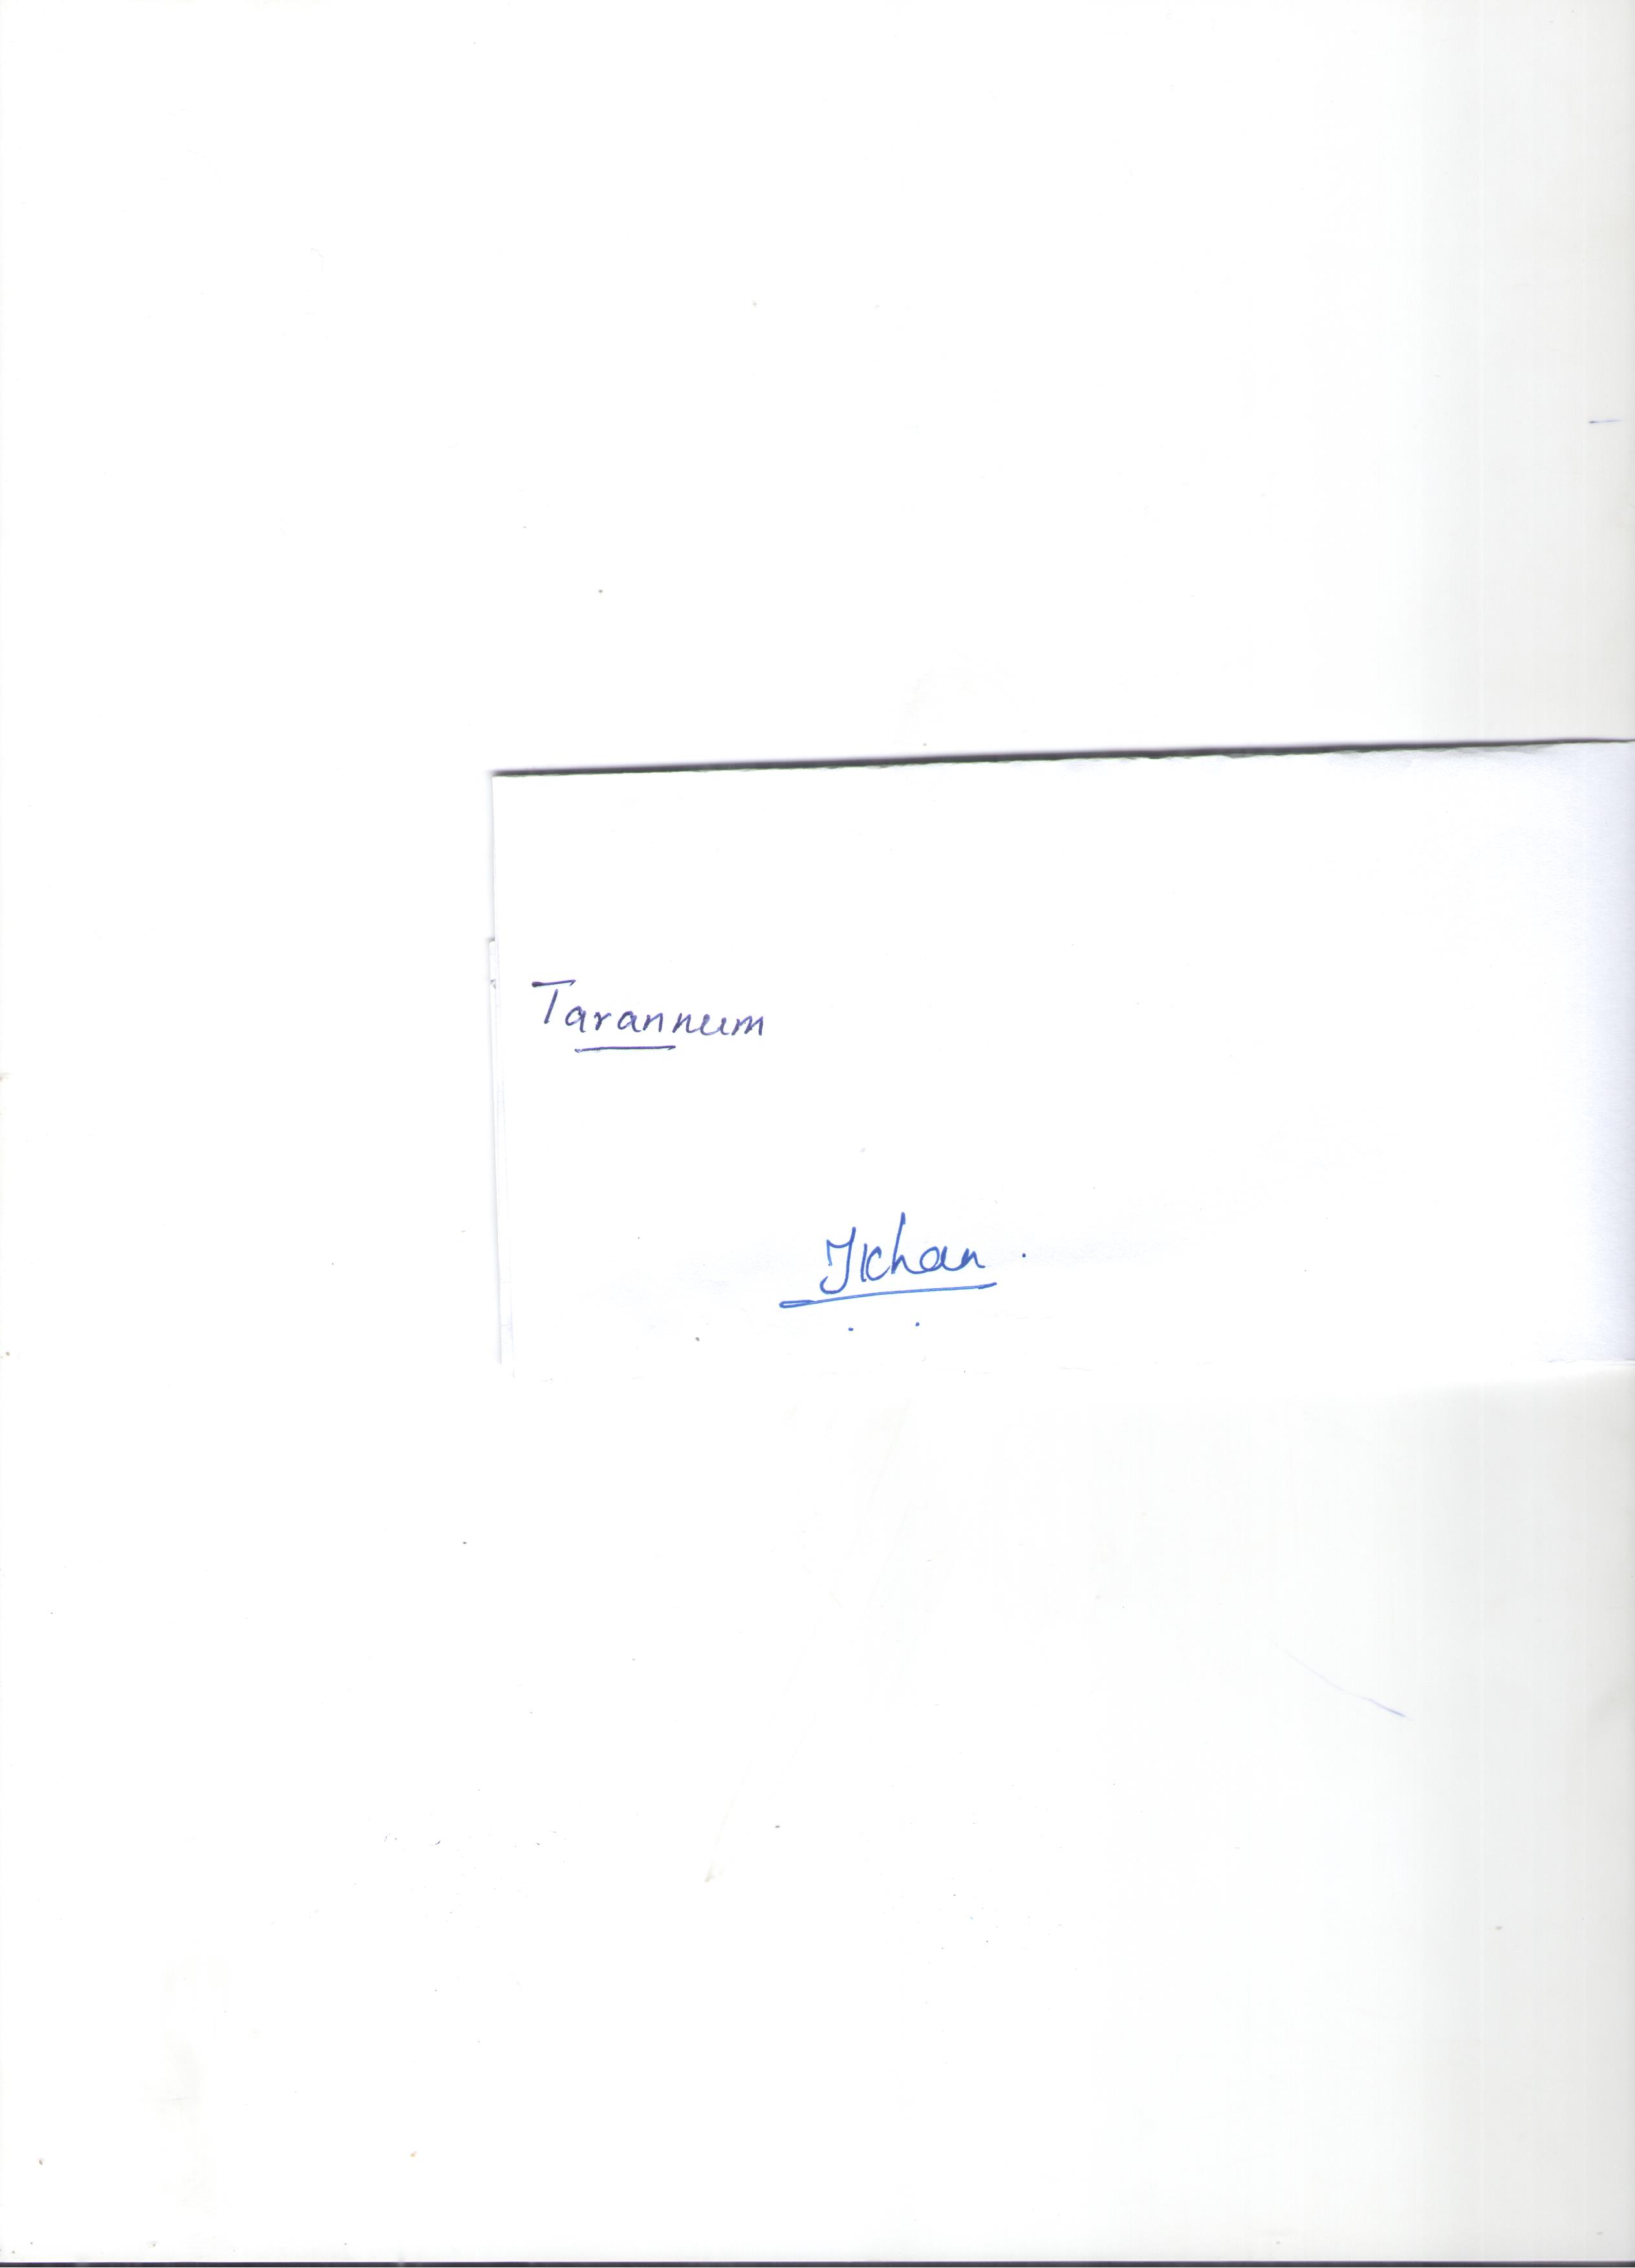 Tarannum
JKhan.